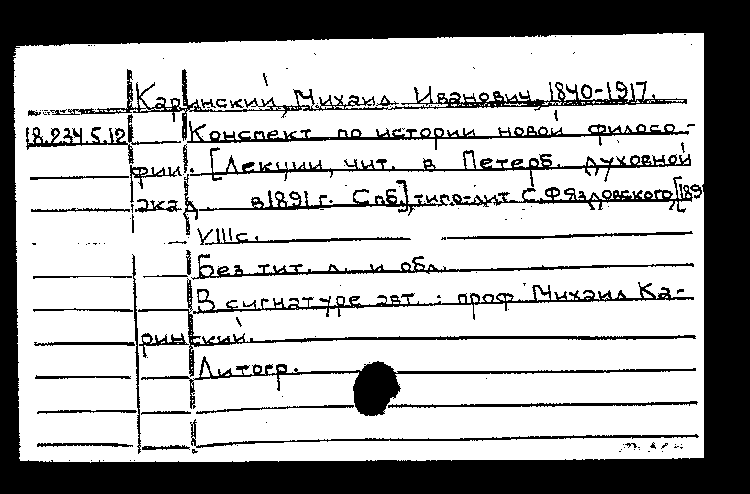 Каринский, Михаил Иванович, 1840-1917.
18.234.5.12 Конспект по истории новой филосо-
фии. [Лекции, чит. в Петерб. духовной
акад. в 1891 г. Спб.], типо-лит С.Ф Яздовского, [189
VIII с.
Без тит. л. и обл.
В сигнатуре авт. : проф. Михаил Ка-
ринский.
Литогр.